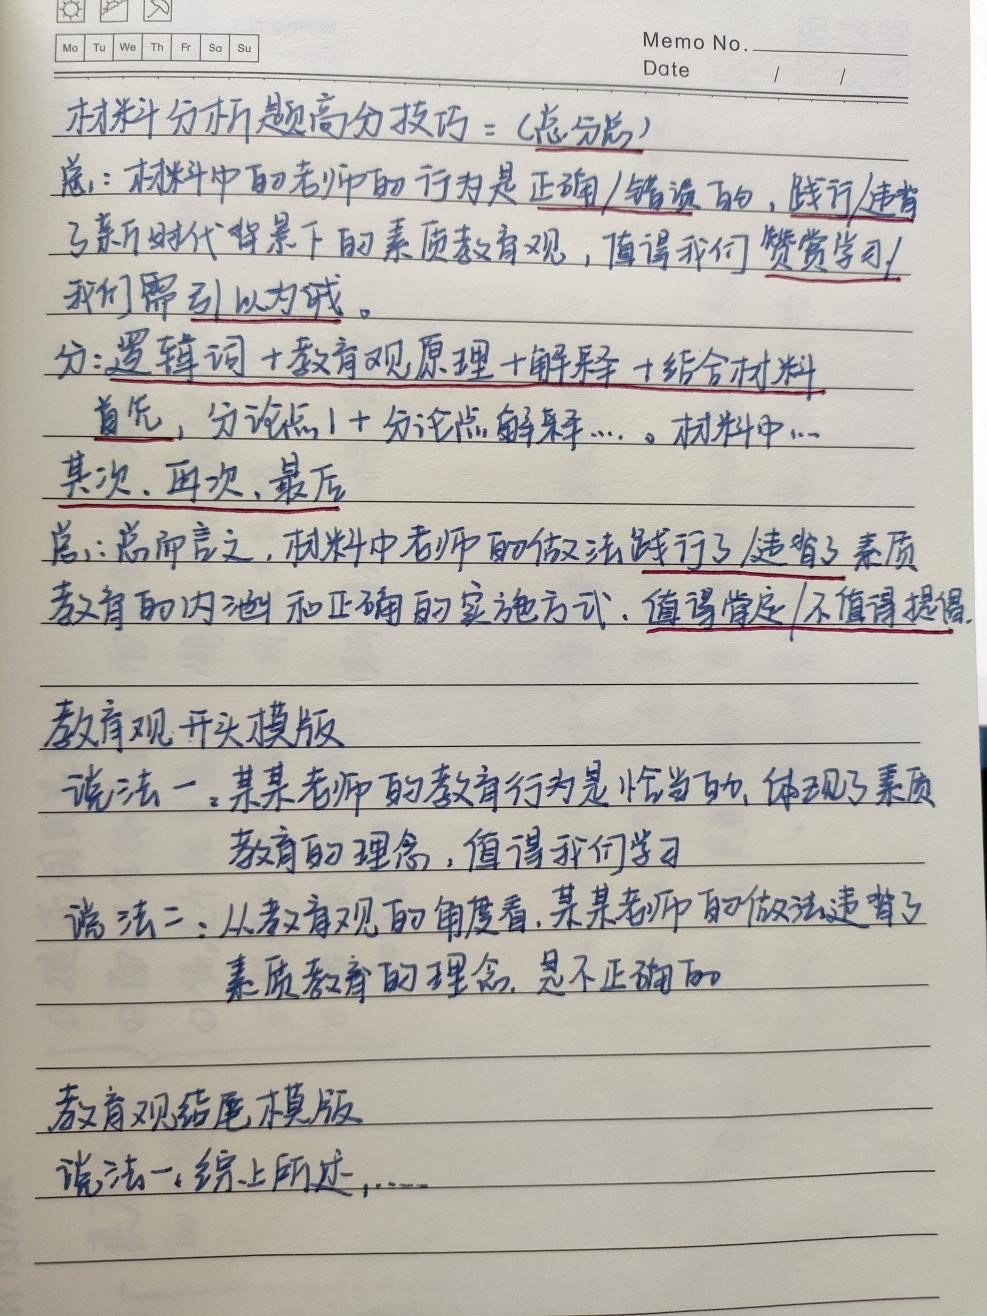 Mo Tu We Th Fr Sa Su
Memo No.
Date / /
材料分析题高分技巧:(总分总)
总:材料中的老师的行为是正确/错误的,践行/违背
了新时代背景下的素质教育观,值得我们赞赏学习/
我们需引以为戒。
分:逻辑词+教育观原理+解释+结合材料
首先,分论点1+分论点解释...。材料中...
其次、再次、最后
总:总而言之,材料中老师的做法践行了/违背了素质
教育的内涵和正确的实施方式,值得肯定/不值得提倡.
教育观开头模版
说法一:某某老师的教育行为是恰当的,体现了素质
教育的理念,值得我们学习
说法二:从教育观的角度看,某某老师的做法违背了
素质教育的理念,是不正确的
教育观结尾模版
说法一:综上所述,......